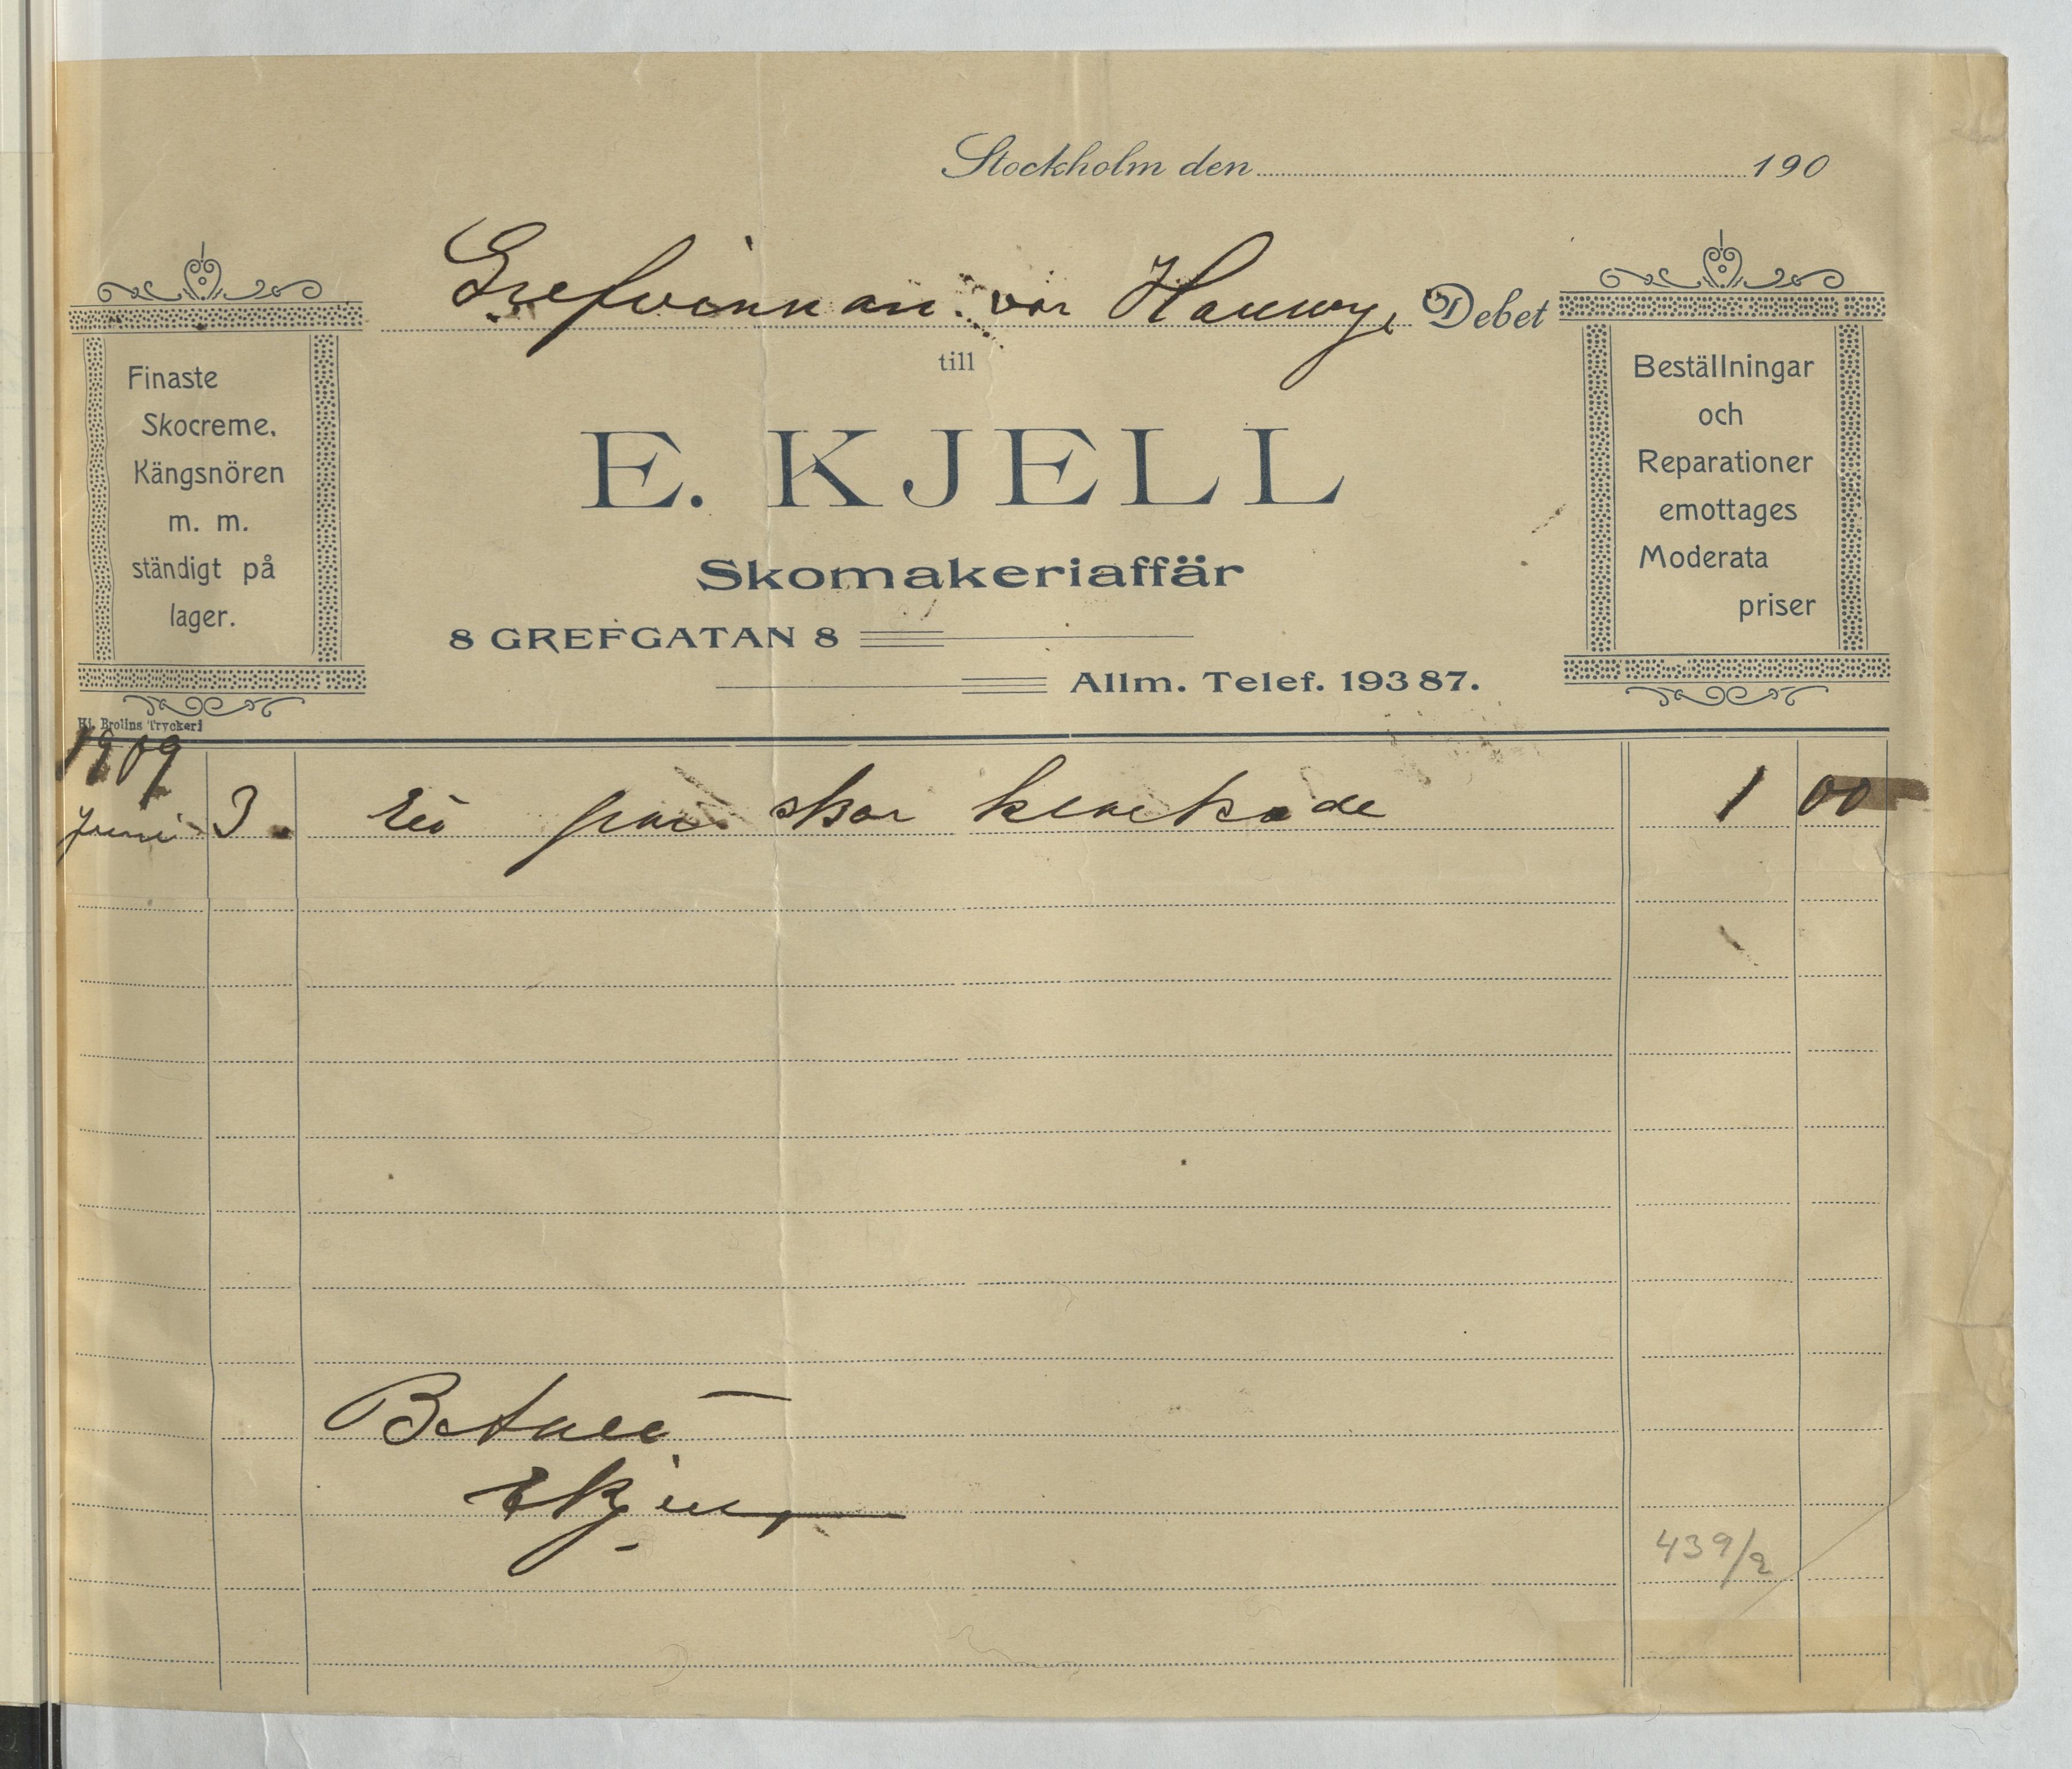 Stockholm den 190
Grefvinnan von Hallwyl Debet
till
E. KJELL
Skomakeriaffär
8 GREFGATAN 8
Allm. Telef. 193 87.
Finaste
Skocreme.
Kängsnören
m. m.
ständigt på
lager.
Beställningar
och
Reparationer
emottages
Moderata
priser
Hj. Brolins Tryckeri
1909
Juni 3. Ett par skor klackade 1 00
Betalt
E Kjell
439/2